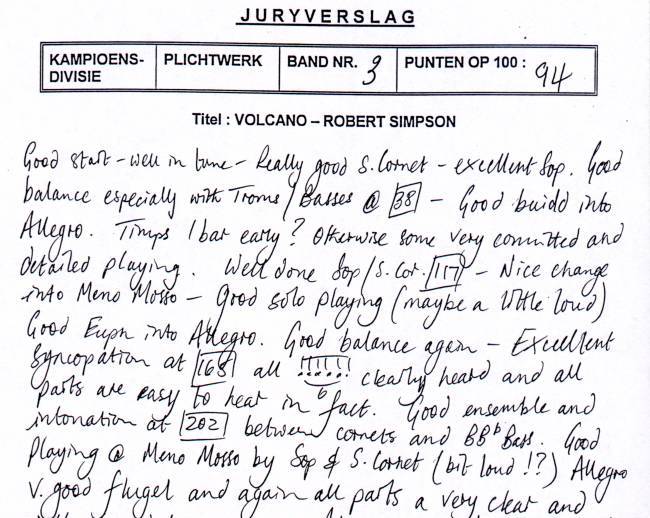 JURYVERSLAG
KAMPIOENS-DIVISIE PLICHTWERK BAND NR. 3 PUNTEN OP 100 : 94
Titel : VOLCANO – ROBERT SIMPSON
Good start – well in tune – Really good S. Cornet – excellent Sop. Good
balance especially with Troms / Basses @ 38 – Good build into
Allegro. Timps 1 bar early? Otherwise some very committed and
detailed playing. Well done Sop/S. Cor. 117 – Nice change
into Meno Mosso – Good solo playing (maybe a little loud)
Good Euph into Allegro. Good balance again – Excellent
Syncopation at 168 all !!!!!! clearly heard and all
parts are easy to hear in fact. Good ensemble and
intonation at 202 between cornets and BBb Bass. Good
Playing @ Meno Mosso by Sop & S. Cornet (bit loud !?) Allegro
V. good flugel and again all parts a very clear and